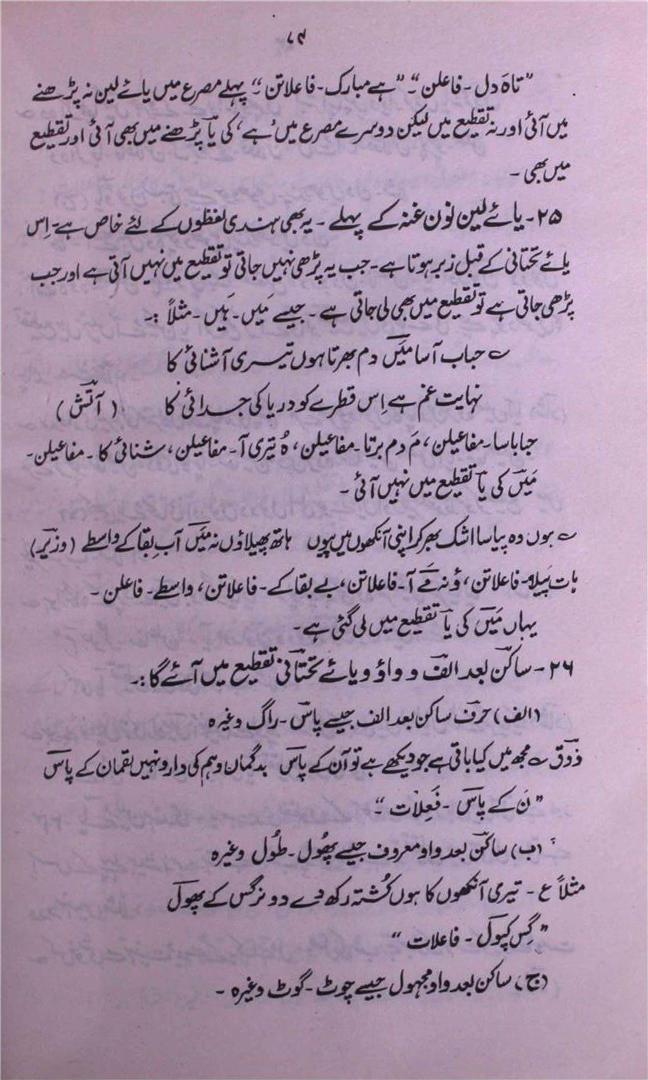 ۷۴
"تاہ دل - فاعلن"۔ "ہے مبارک - فاعلاتن"۔ پہلے مصرع میں یائے لین نہ پڑھنے
میں آئی اور نہ تقطیع میں لیکن دوسرے مصرع میں 'ہے' کی یا پڑھنے میں بھی آئی اور تقطیع
میں بھی ۔
۲۵ - یائے لین نون غنہ کے پہلے ۔ یہ بھی ہندی لفظوں کے لئے خاص ہے۔ اِس
یائے تحتانی کے قبل زبر ہوتا ہے۔ جب یہ پڑھی نہیں جاتی تو تقطیع میں نہیں آتی ہے اور جب
پڑھی جاتی ہے تو تقطیع میں بھی لی جاتی ہے ۔ جیسے مَیں - ہَیں - مثلاً :۔
؎ حباب آسا مَیں دم بھرتا ہوں تیری آشنائی کا
نہایت غم ہے اِس قطرے کو دریا کی جدائی کا ( آتش )
حبابا سا - مفاعیلن ، مَ دم برتا - مفاعیلن ، ہُ تیری آ - مفاعیلن ، شنائی کا - مفاعیلن -
مَیں کی یا تقطیع میں نہیں آئی ۔
؎ ہوں وہ پیاسا اشک بھر کر اپنی آنکھوں میں پیوں ہاتھ پھیلاؤں نہ مَیں آب بقا کے واسطے (وزیر)
ہات پیلا - فاعلاتن ، ؤ نہ مے آ - فاعلاتن ، بے بقا کے - فاعلاتن ، واسطے - فاعلن -
یہاں مَیں کی یا تقطیع میں لی گئی ہے ۔
۲۶ - ساکن بعد الف و واؤ و یائے تحتانی تقطیع میں آئے گا :۔
(الف) حرف ساکن بعد الف جیسے پاس - راگ وغیرہ
ذوق ؎ مجھ میں کیا باقی ہے جو دیکھے ہے تو آن کے پاس بدگمان وہم کی دارو نہیں لقمان کے پاس
"نَ کے پاس - فَعِلات"
(ب) ساکن بعد واو معروف جیسے پھول - طُول وغیرہ
مثلاً ع - تیری آنکھوں کا ہوں کُشتہ رکھ دے دو نرگس کے پھول
"گِس کپول - فاعلات"
(ج) ساکن بعد واو مجہول جیسے چوٹ - گوٹ وغیرہ ۔